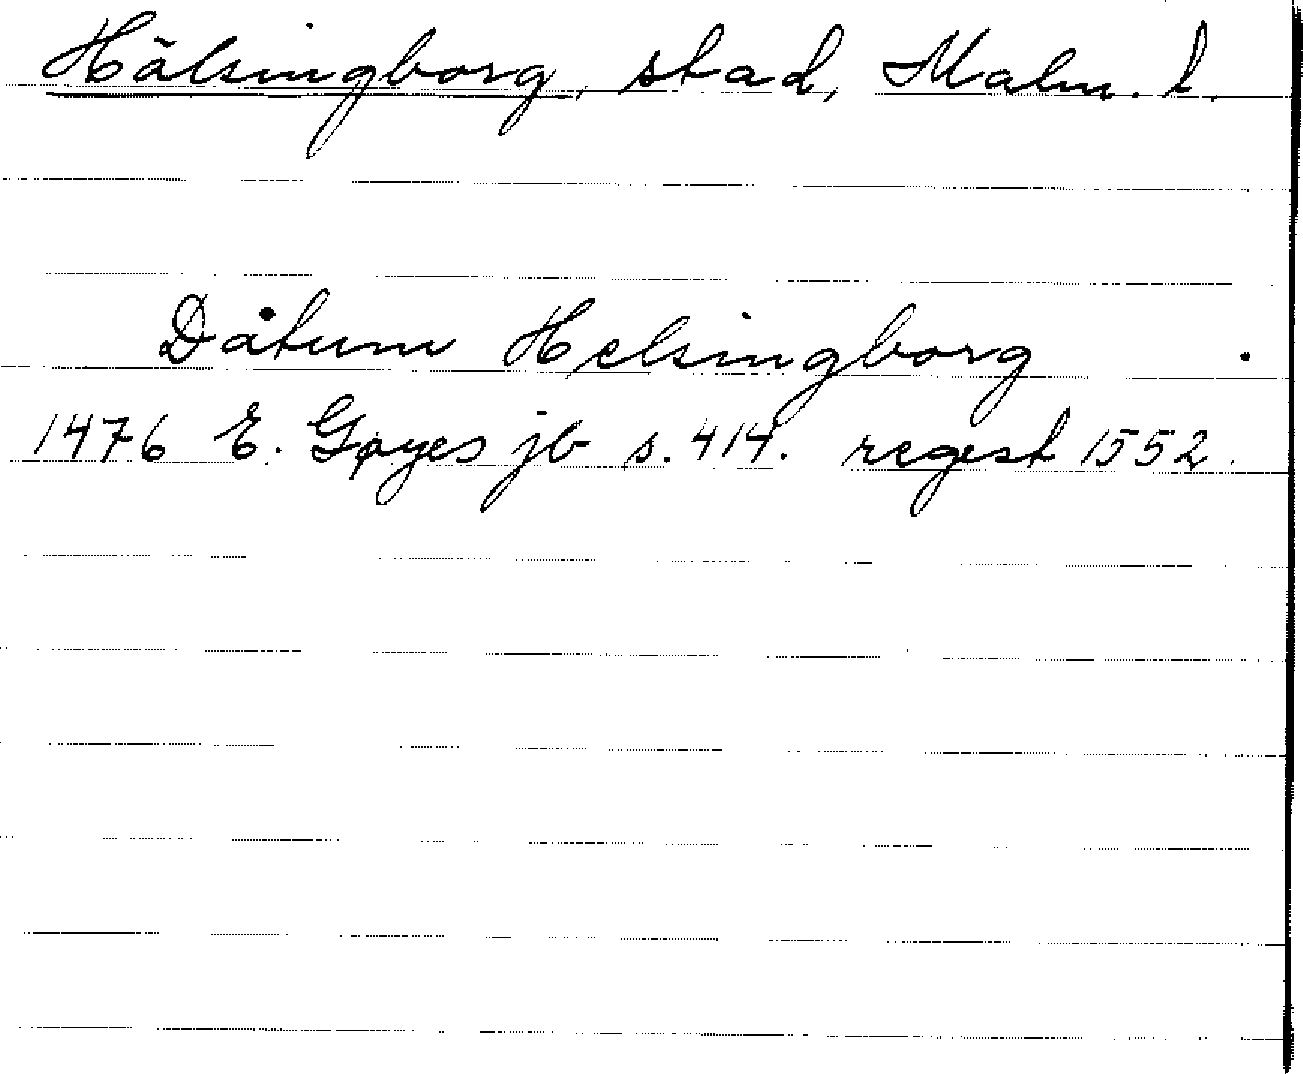 Hälsingborg, stad, Malm. l.
Datum Helsingborg
1476 E. Gøyes jb s. 414. regest 1552.